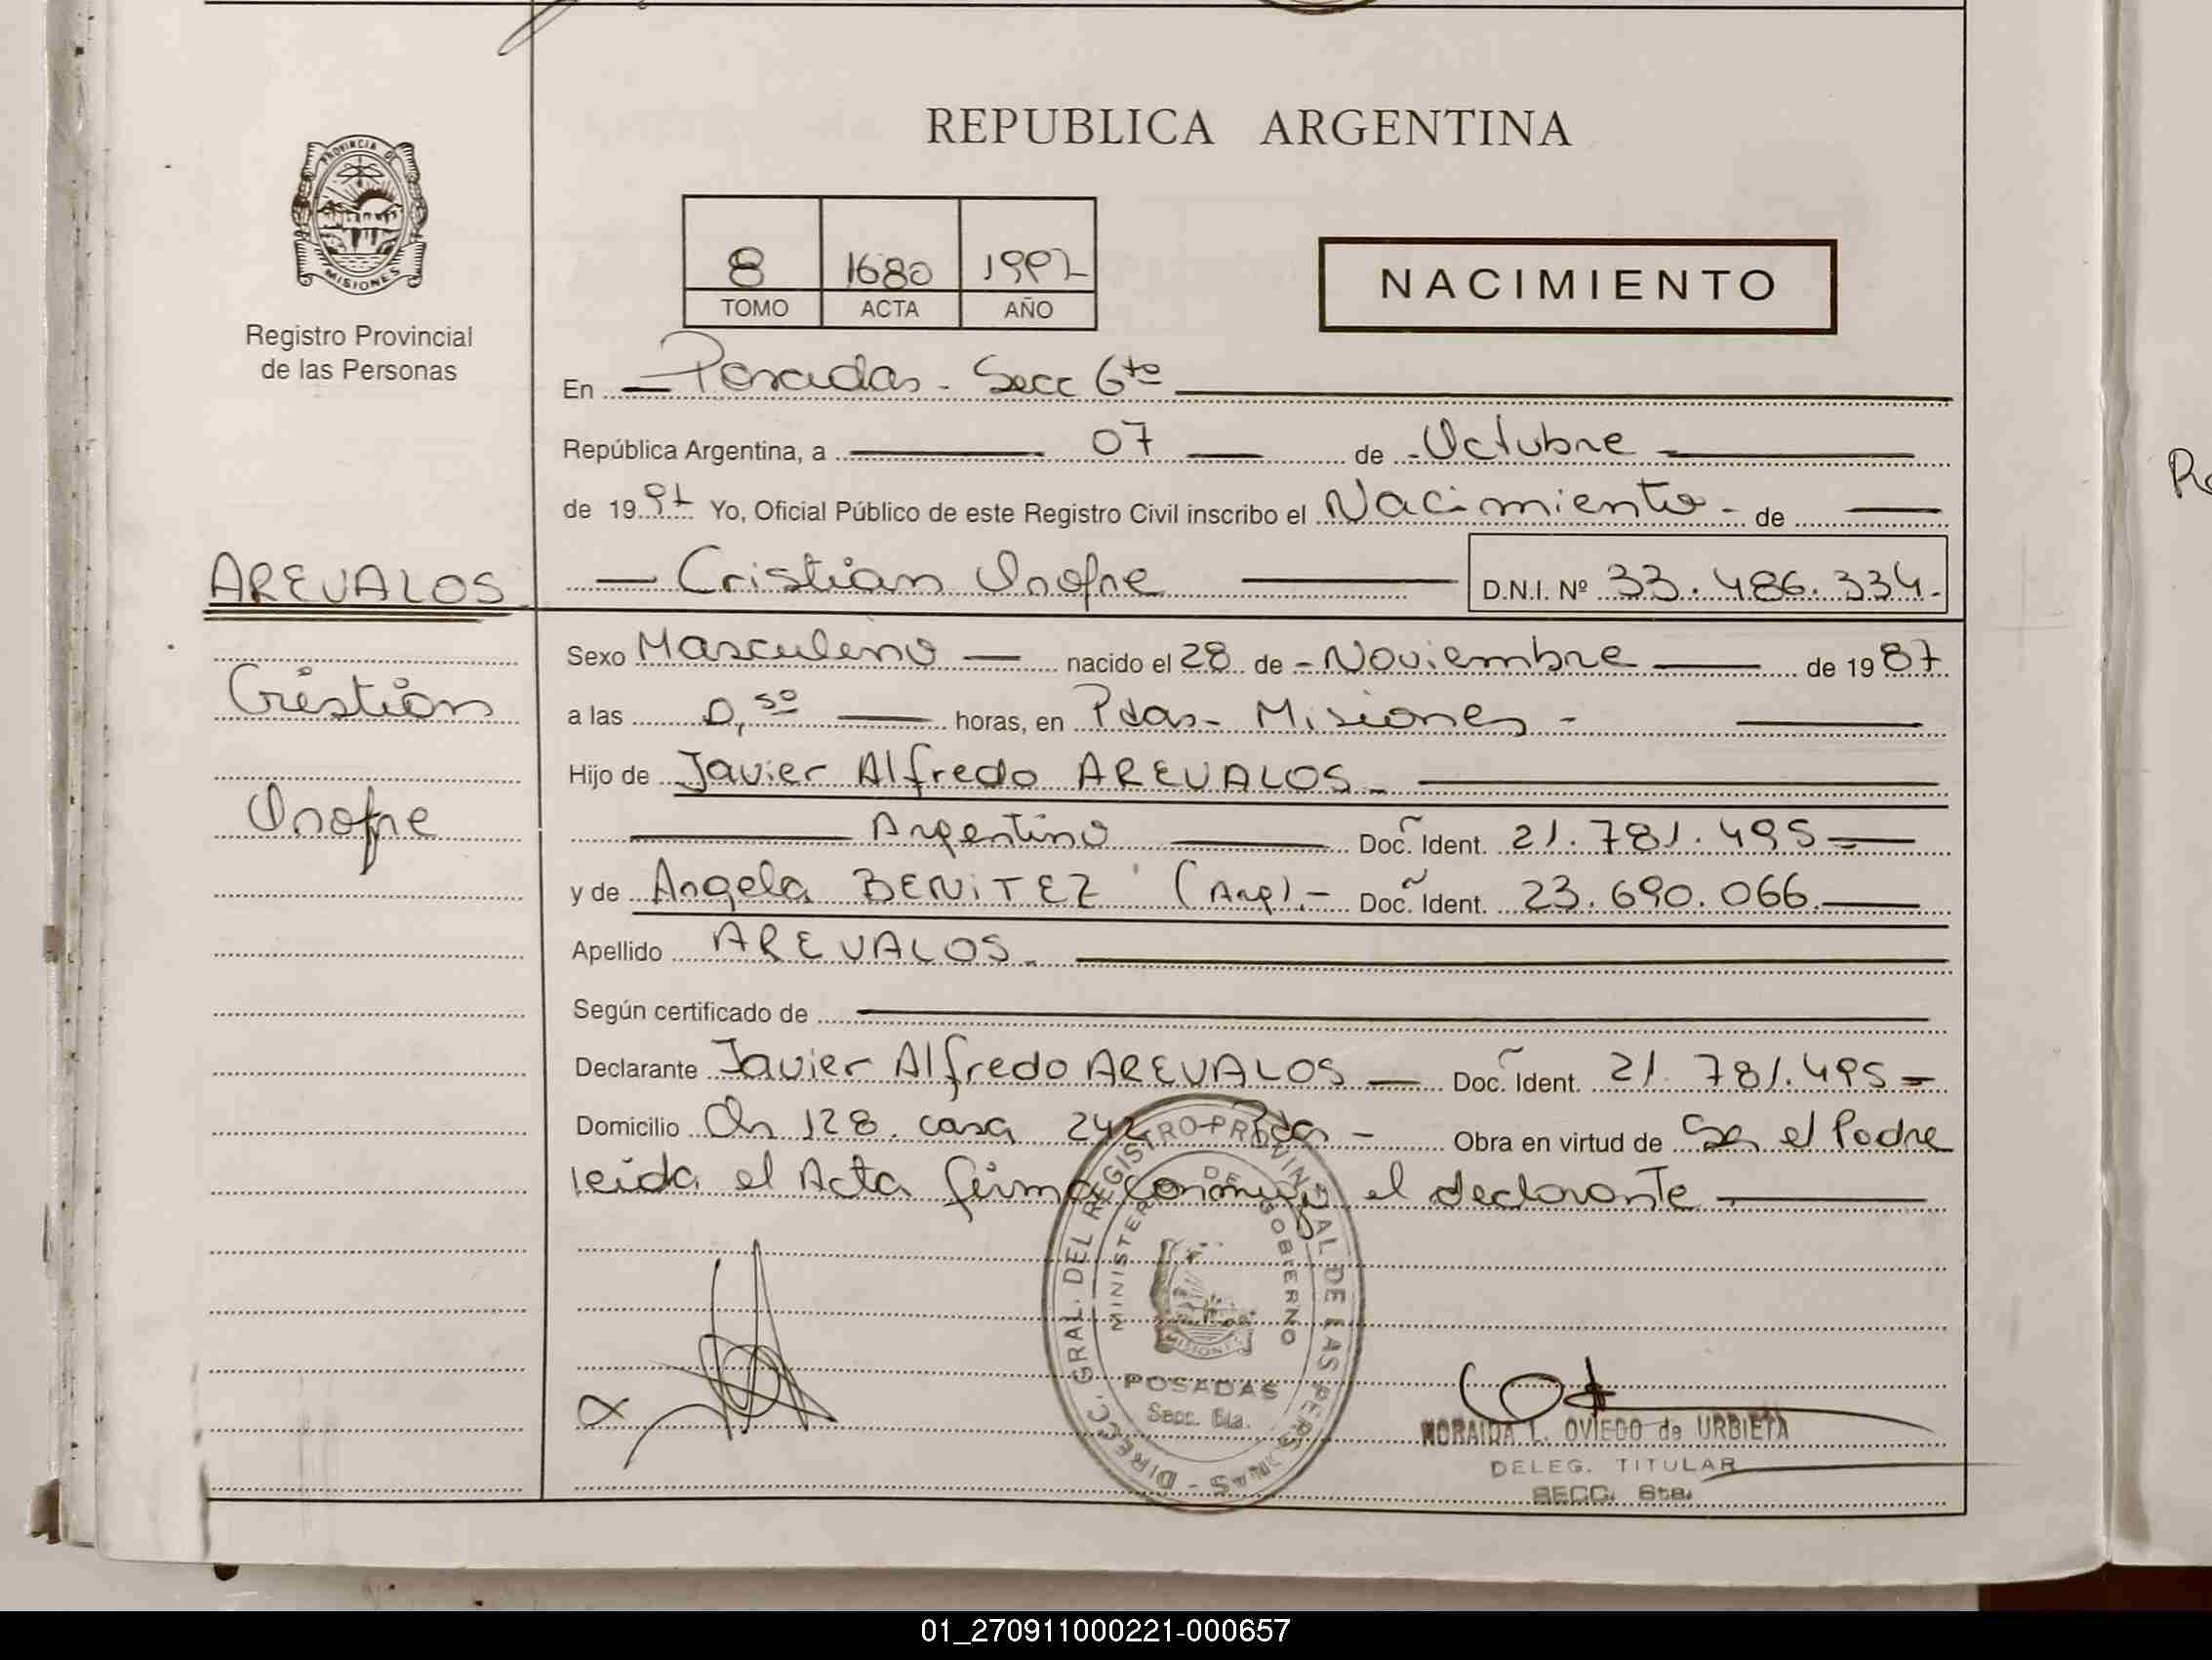 REPUBLICA ARGENTINA
PROVINCIA DE
MISIONES
Registro Provincial
de las Personas
8 1680 1992
TOMO ACTA AÑO
NACIMIENTO
En Posadas - Secc 6ta
República Argentina, a 07 de Octubre
de 1992 Yo, Oficial Público de este Registro Civil inscribo el Nacimiento - de
AREVALOS
Cristian Onofre D.N.I. Nº 33.486.334.-
Cristian
Onofre
Sexo Masculino nacido el 28 de - Noviembre de 1987
a las 0,50 horas, en Pdas - Misiones -
Hijo de Javier Alfredo AREVALOS -
Argentino Doc. Ident. 21.781.495 =
y de Angela BENITEZ (Arg).- Doc. Ident. 23.690.066
Apellido AREVALOS -
Según certificado de
Declarante Javier Alfredo AREVALOS Doc. Ident. 21.781.495 =
Domicilio Ch 128 . casa 242 Pdas - Obra en virtud de Ser el Padre
leida el Acta firma conmigo el declarante
DIRECC. GRAL. DEL REGISTRO PROVINCIAL DE LAS PERSONAS -
MINISTERIO DE GOBERNO
MISIONES
POSADAS
Secc. 6ta.
NORAIDA L. OVIEDO de URBIETA
DELEG. TITULAR
SECC. 6ta.
01_270911000221-000657